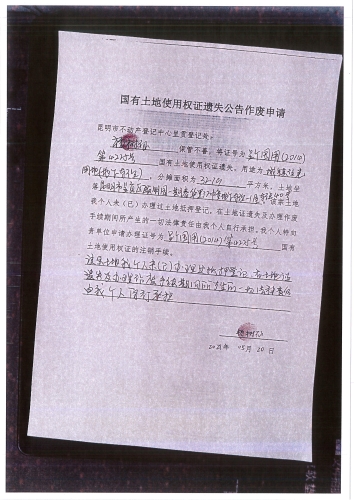 国有土地使用权证遗失公告作废申请
昆明市不动产登记中心呈贡登记处:
保管不善,将证号为呈国用(2010)
第4225号 国有土地使用权证遗失,用途为
分摊面积为 32.10 平方米,土地坐
落 该宗土
地我个人未(已)办理过土地抵押登记。在土地证遗失及办理作废
手续期间所产生的一切法律责任由我个人自行承担。我个人特向
贵单位申办理证号为呈国用(2010)第4225号 国有
土地使用权证的注销手续。
该宗土地我个人未(已)办理过抵押登记 在土地证
遗失及办理作废手续期间所产生的一切法律责任
由我个人自行承担
2021年 05月 20日